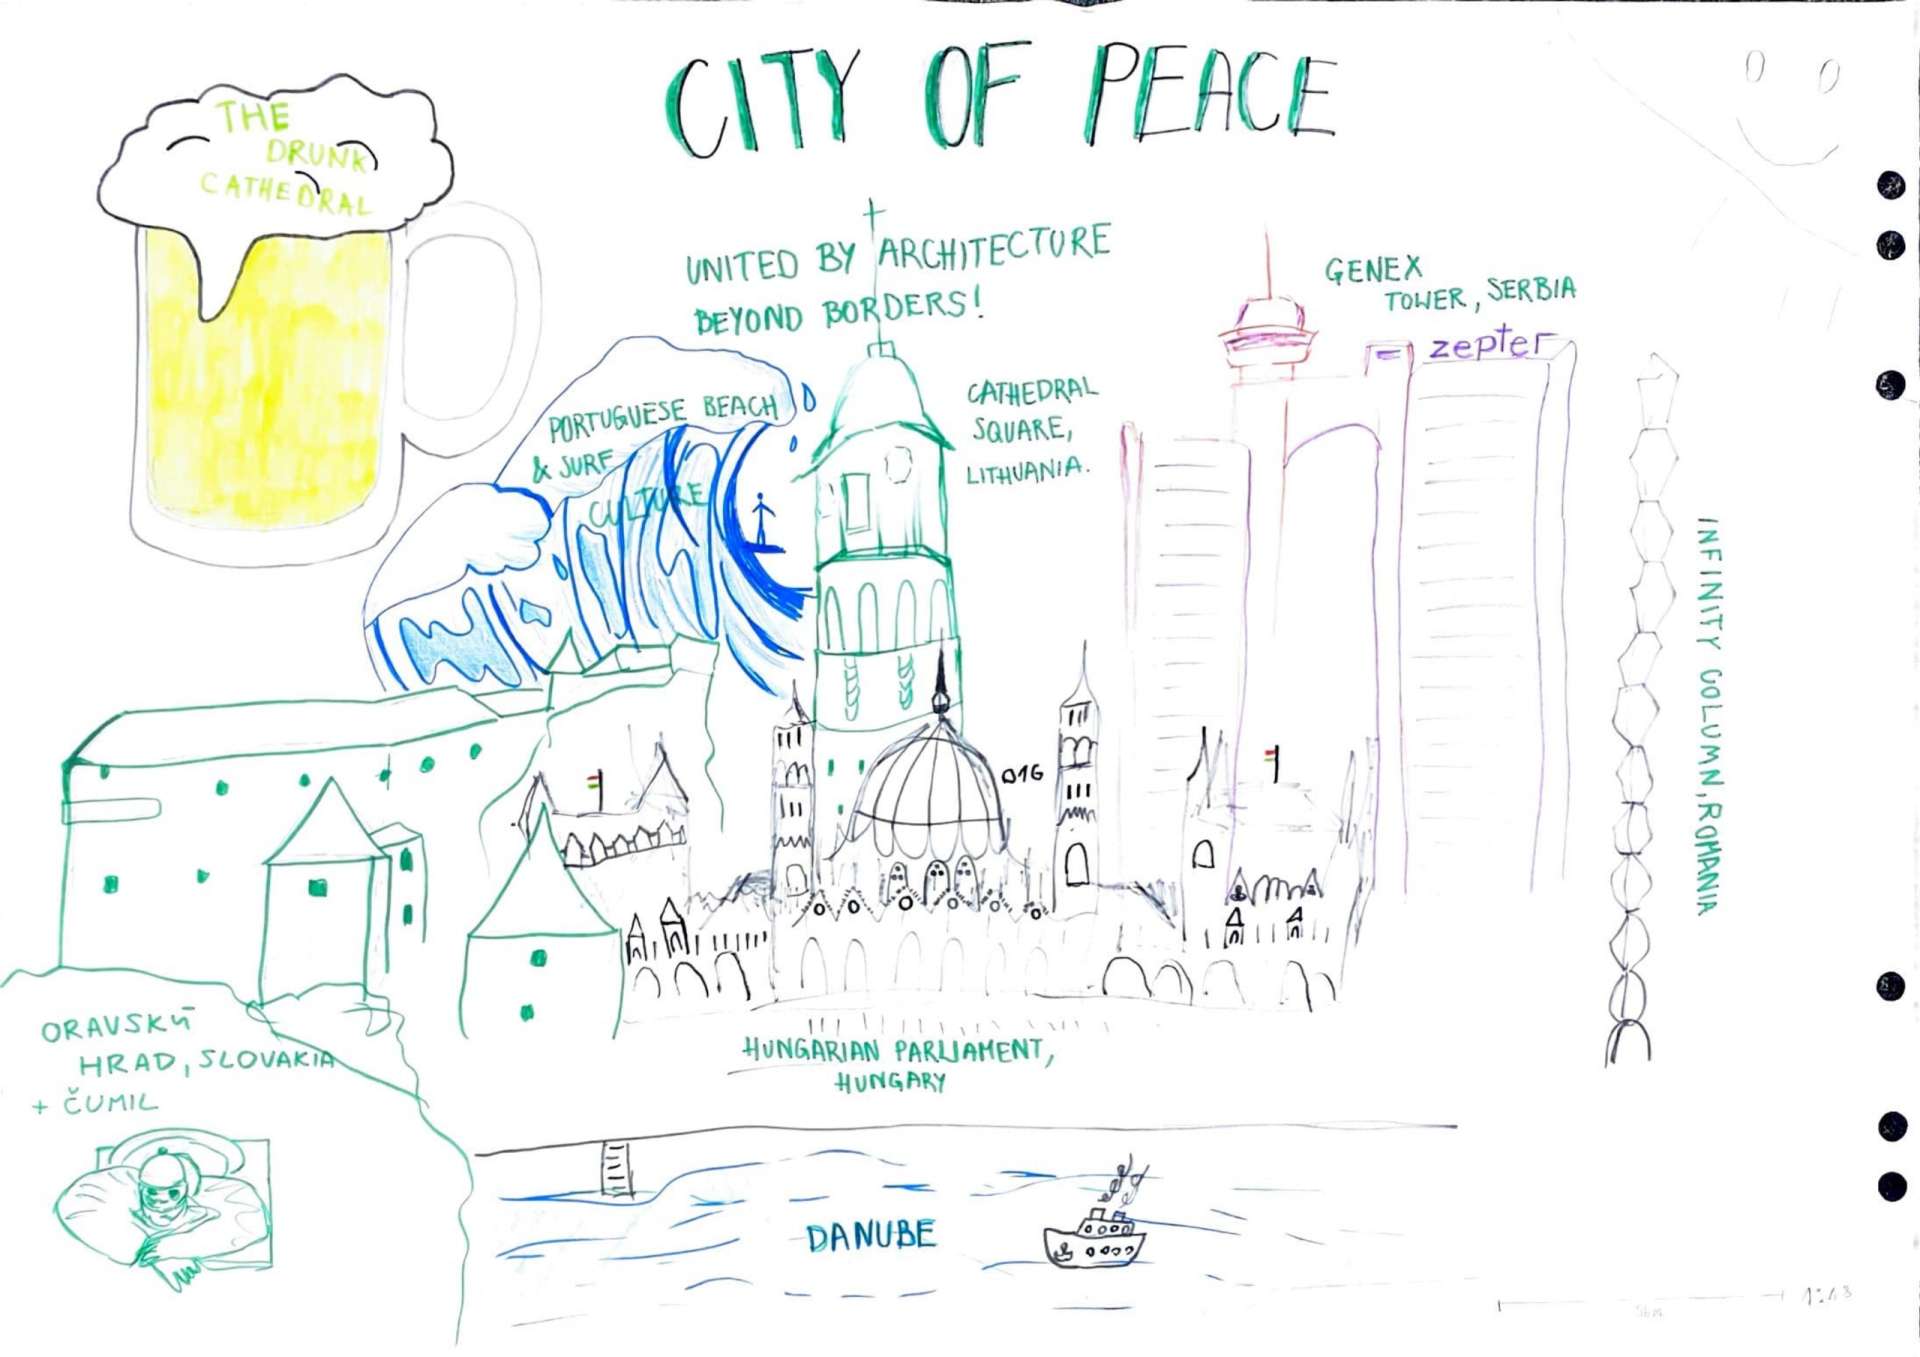 CITY OF PEACE
THE
DRUNK
CATHEDRAL
UNITED BY ARCHITECTURE
BEYOND BORDERS!
GENEX
TOWER, SERBIA
zepter
PORTUGUESE BEACH
& SURF
CULTURE
CATHEDRAL
SQUARE,
LITHUANIA.
INFINITY COLUMN, ROMANIA
ORAVSKÝ
HRAD, SLOVAKIA
+ ČUMIL
HUNGARIAN PARLIAMENT,
HUNGARY
DANUBE